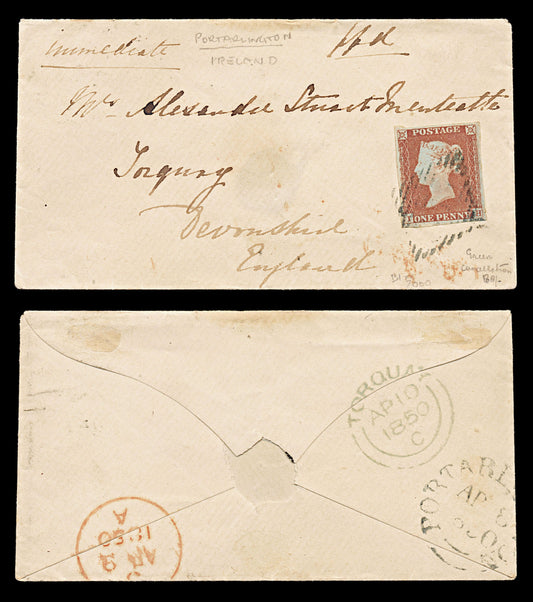 immediate
PORTARLINGTON
IRELAND
ppd
Mrs Alexander Stuart Menteath
Torquay
Devonshire
England
POSTAGE
ONE PENNY
B1 5
Green
Cancellation
TORQUAY
AP 10
1850
C
PORTARL
AP 8
1850
A
AP 9
1850